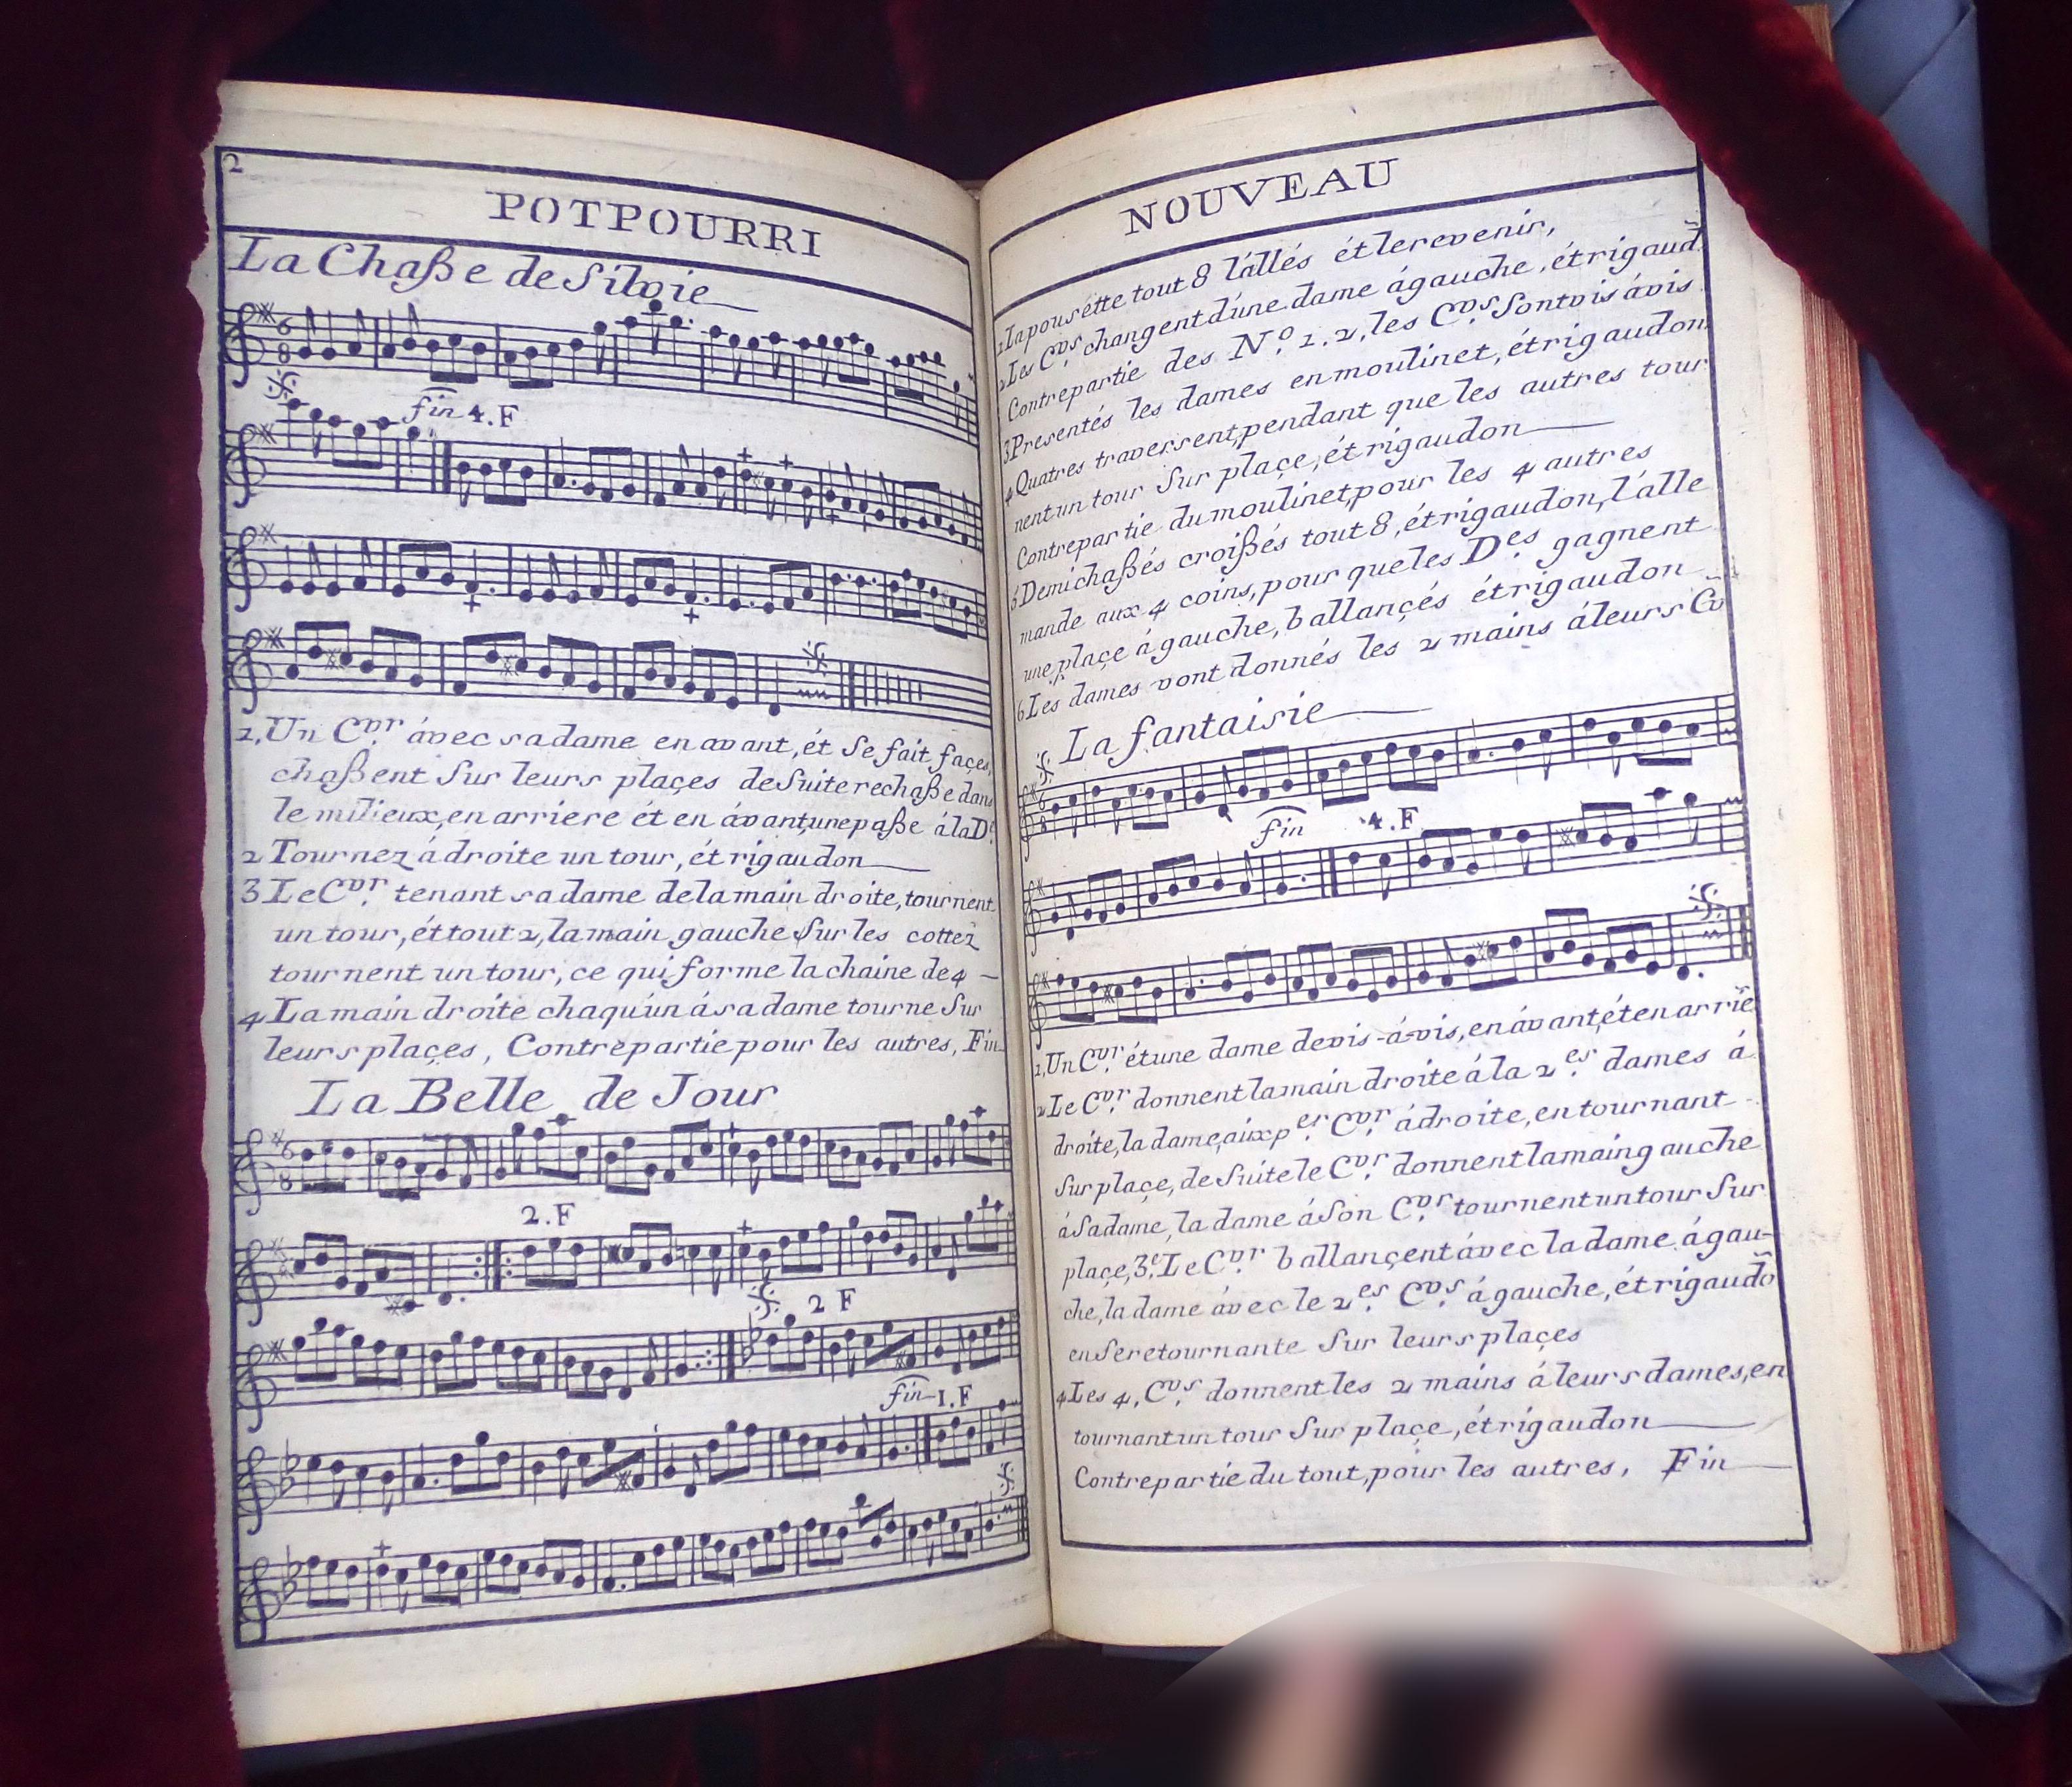 2
POTPOURRI
La Chaße de Silvie
fin 4.F
1, Un Cvr. ávec sa dame en avant, ét Se fait façes,
chaßent Sur leurs plaçes de Suite rechaße dans
le milieux, en arriere ét en ávant, une paße á la De.
2 Tournez á droite un tour, ét rigaudon
3 Le Cvr. tenant sa dame de la main droite, tournent
un tour, ét tout 2, la main gauche Sur les cottez
tournent un tour, ce qui forme la chaine de 4
4 La main droite chaqu'un á sa dame tourne Sur
leurs plaçes, Contrepartie pour les autres, Fin
La Belle de Jour
2.F
2 F
fin 1.F
NOUVEAU
1 La pousétte tout 8 l'állés ét le revenir,
2 Les Cvrs. changent d'une dame á gauche, ét rigaud.
Contrepartie des No. 1. 2, les Cvrs. Sont vis ávis
3 Presentés les dames en moulinet, ét rigaudon
4 Quatres traversent, pendant que les autres tour
nent un tour Sur plaçe, ét rigaudon
Contrepartie du moulinet, pour les 4 autres
5 Demi chaßés croißés tout 8, ét rigaudon, l'alle
mande aux 4 coins, pour que les Des gagnent
une plaçe á gauche, ballançés ét rigaudon
6 Les dames vont donnés les 2 mains á leurs Cv
La fantaisie
fin 4.F
1, Un Cvr. ét une dame de vis-á-vis, en ávant, ét en arrie
2 Le Cvr. donnent la main droite á la 2es. dames á
droite, la dame, aux per. Cvr. á droite, en tournant
Sur plaçe, de Suite le Cvr. donnent la main gauche
á Sa dame, la dame á Son Cvr. tournent un tour Sur
plaçe, 3e. Le Cvr. ballançent ávec la dame á gau-
che, la dame ávec le 2es. Cvrs. á gauche, ét rigaudo
en Se retournante Sur leurs plaçes
4 Les 4, Cvrs. donnent les 2 mains á leurs dames, en
tournant un tour Sur plaçe, ét rigaudon
Contrepartie du tout, pour les autres, Fin